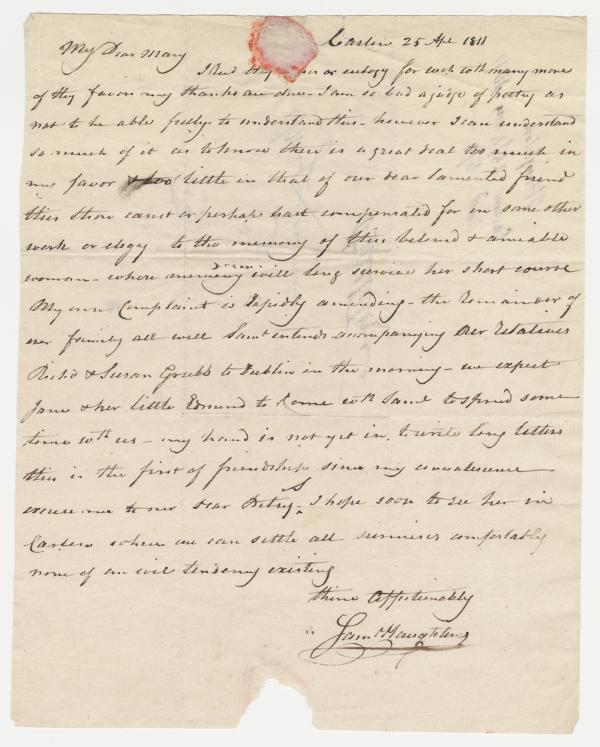 Carlow 25 Apl 1811
My Dear Mary
I Recd thy or eulogy for wch wth many more
of thy favors my thanks are due - I am so bad a judge of poetry as
not to be able fully to understand this - however I can understand
so much of it as to know there is a great deal too much in
my favor & too little in that of our dear lamented friend
this thou canst or perhaps hast compensated for in some other
work or elegy to the memory of this beloved & amiable
woman - whose memory will long survive her short course
My own Complaint is tepidly amending - the remainder of
our family all well Saml intends accompanying Our Relatives
Richd & Susan Grubb to Dublin in the morning - we expect
Jane & her little Edmund to come wth Saml to spend some
time wth us - my hand is not yet in to write long letters
this is the first of friendship since my convalescence
excuse me to our Dear Betsy - I hope soon to see her in
Carlow when we can settle all surmises comfortably
none of an evil tendency existing
thine Affectionately
Saml Haughton